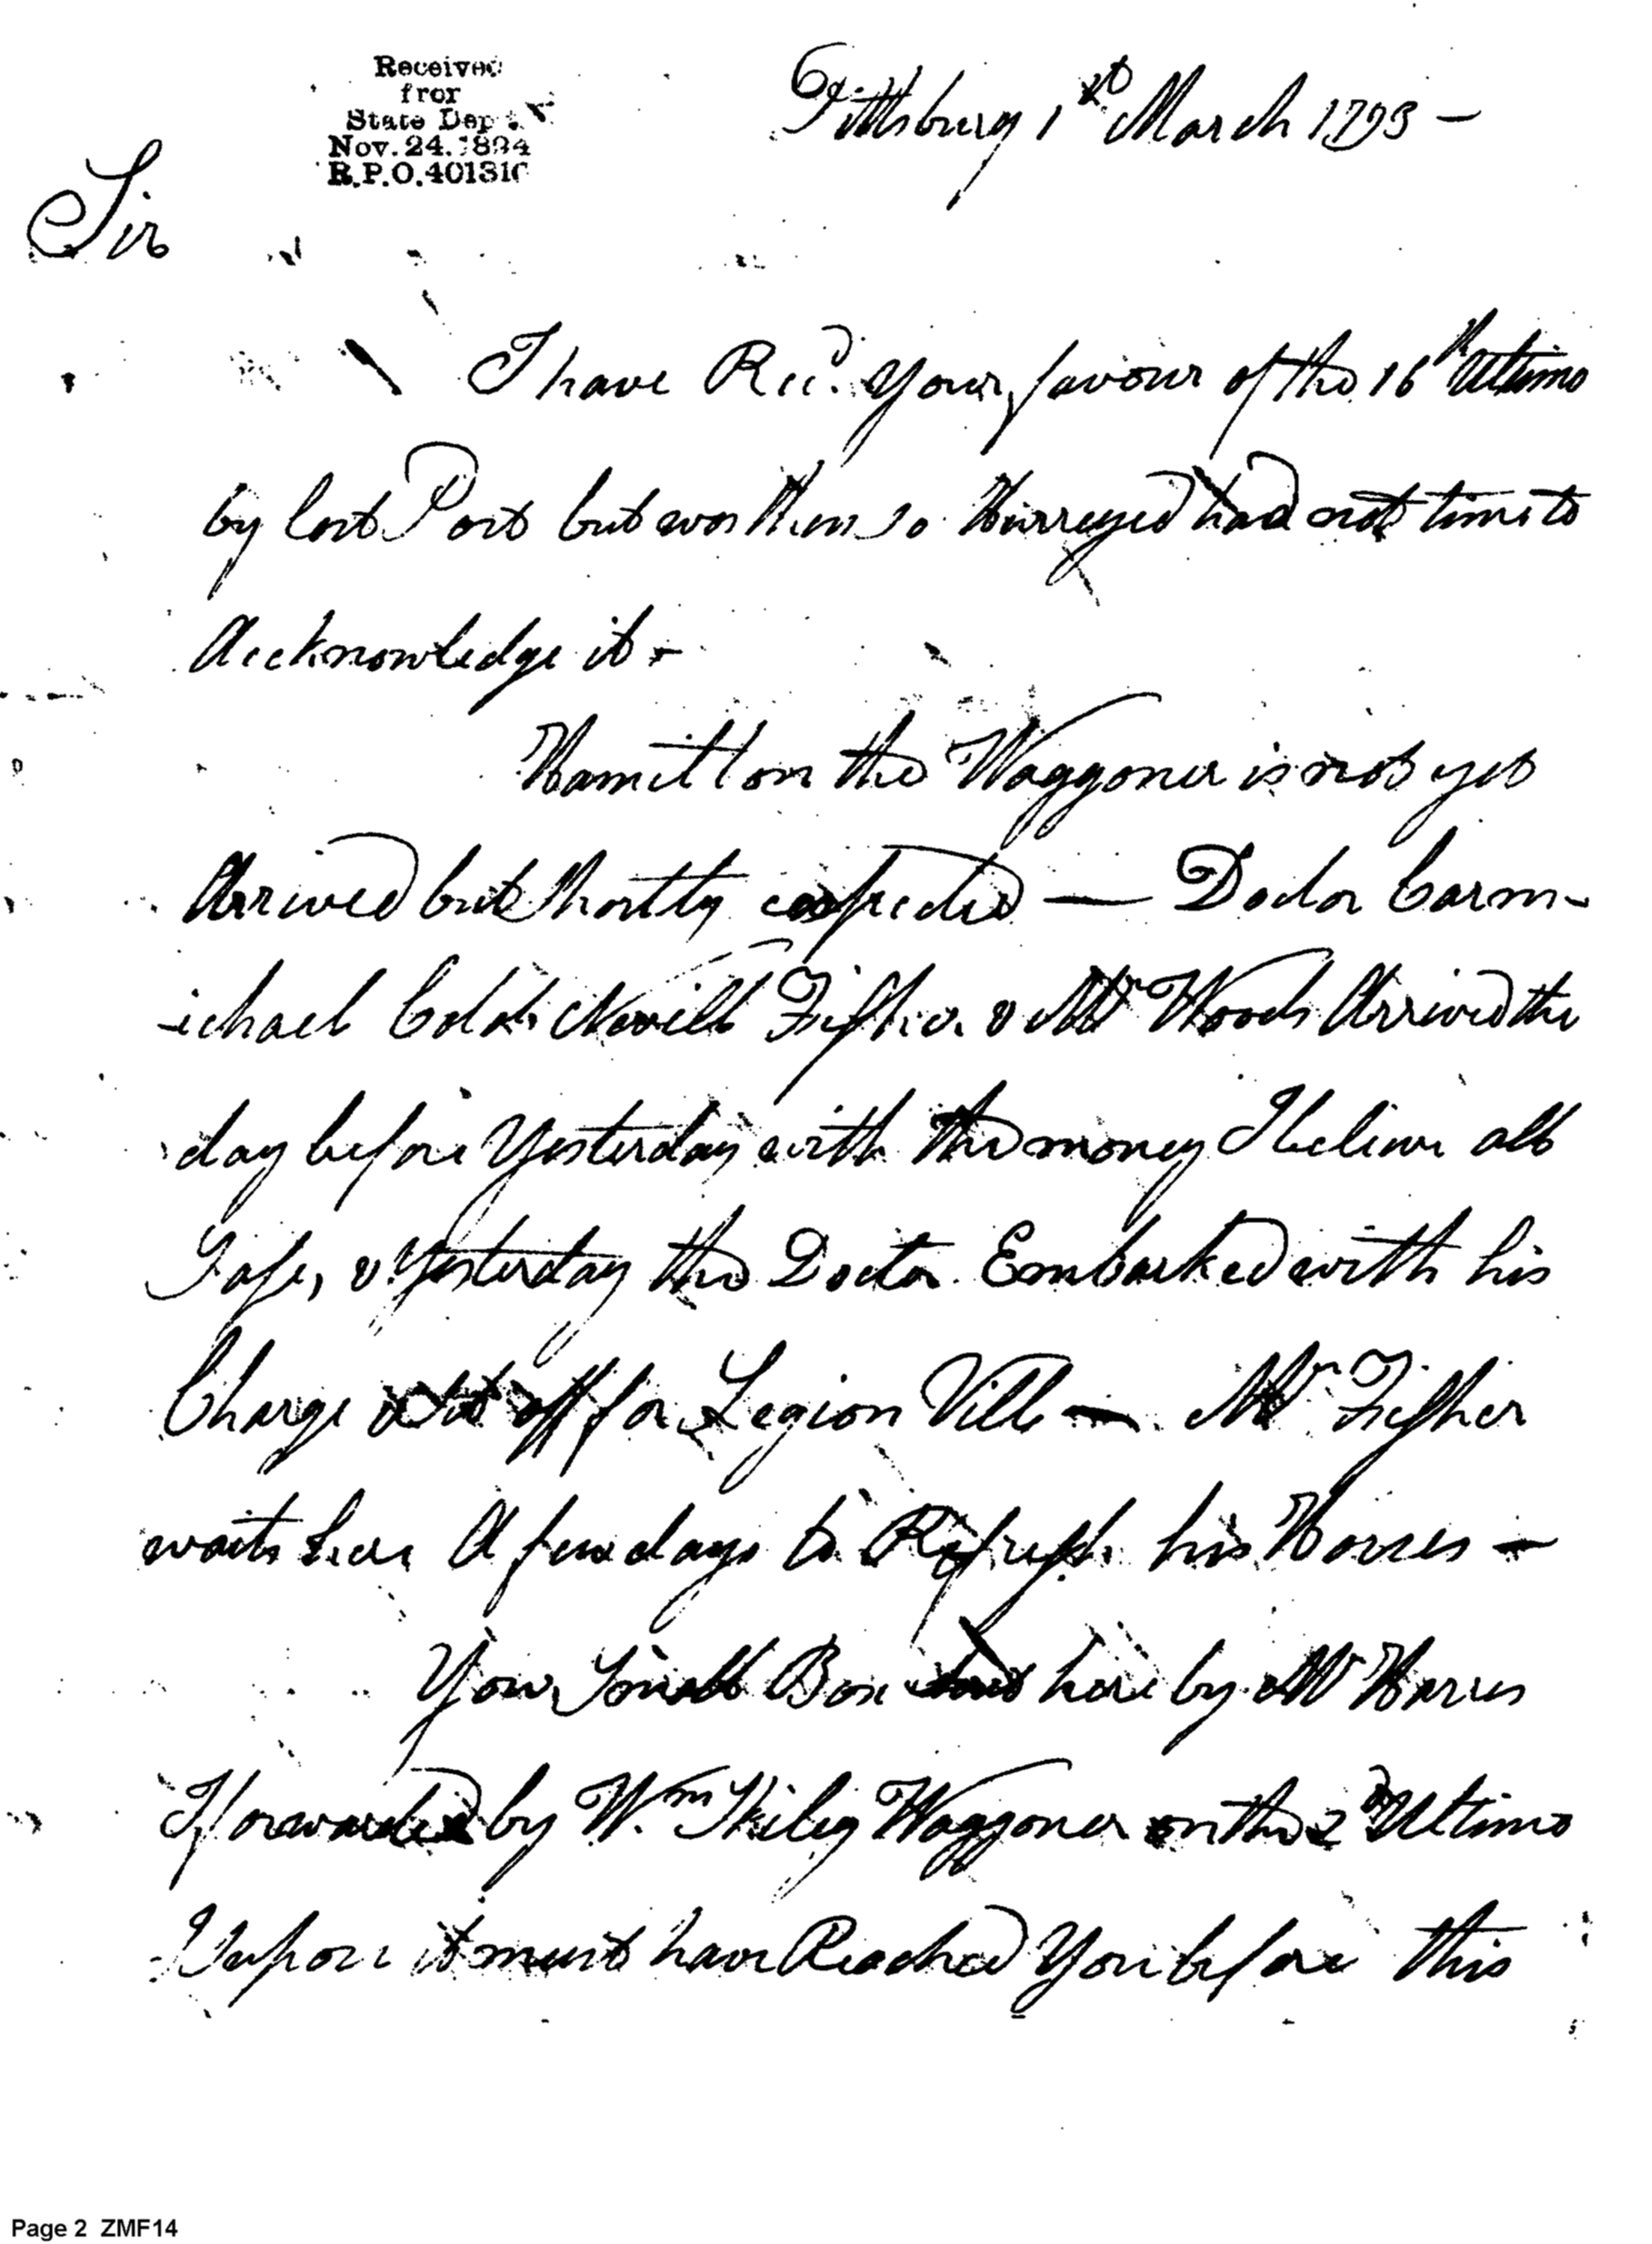 Received
from
State Dep't
Nov. 24. 1894
R.P.O. 401310
Pittsburg 1st March 1793 -
Sir
I have Recd. your favour of the 16th Ultimo
by last Post but was then so Hurreyed had not time to
Acknowledge it -
Hamilton the Waggoner is not yet
Arrived but Shortly expected — Doctor Carm-
ichael Colol. Nevill Fisher & Mr Woods Arrived the
day before Yesterday with the money I believe all
Safe, & Yesterday the Doctor Embarked with his
Charge & Set off for Legion Vill — Mr Fisher
waits here A few days to Refresh his Horses —
Your Small Box here by Mr Harris
I forwarded by Wm Waggoner on the 2d Ultimo
I Supose it must have Reached You before this
Page 2 ZMF14